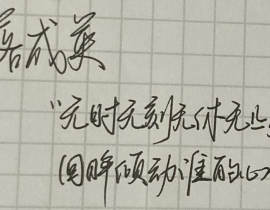 落成英
"无时无刻无休无止
回眸倾动谁的心